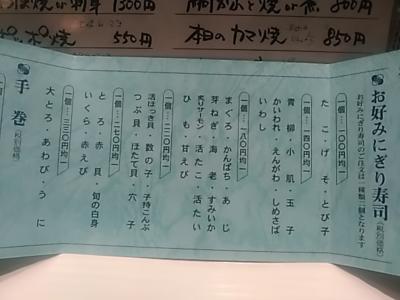 1300円
焼 550円
800円
本日のカマ焼 850円
お好みにぎり寿司(税別価格)
お好みにぎり寿司のご注文は一種類二個となります
一個…一〇〇円均一
たこ・げそ・とび子
一個…一四〇円均一
青柳・小肌・玉子
かいわれ・えんがわ・しめさば
いわし
一個…一八〇円均一
まぐろ・かんぱち・あじ
芽ねぎ・海老・すみいか
炙りサーモン・活たこ・活たい
ひも・甘えび
一個…二二〇円均一
活ほっき貝・数の子・子持こんぶ
つぶ貝・ほたて貝・穴子
一個…二七〇円均一
とろ・赤貝・旬の白身
いくら・赤えび
一個…三三〇円均一
大とろ・あわび・うに
手巻(税別価格)